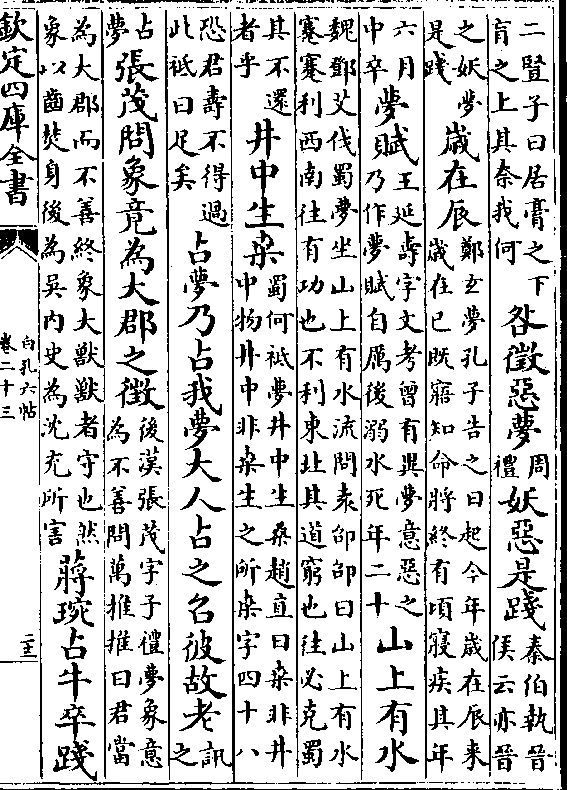 二豎子曰居膏之下肓之上其奈我何咎徵惡夢周禮妖惡是踐秦伯執晉侯云亦晉
之妖夢是踐歲在辰鄭玄夢孔子告之曰起今年歲在辰来歲在已既寤知命將終有頃寢疾其年
六月中卒夢賦王延壽字文考曾有異夢意惡之乃作夢賦自厲後溺水死年二十山上有水
魏鄧艾伐蜀夢坐山上有水流問袁邵邵曰山上有水蹇蹇利西南往有功也不利東北其道窮也往必克蜀
其不還者乎井中生桒蜀何祗夢井中生桑趙直曰桒非井中物井中非桒生之所桒字四十八
恐君壽不得過此祗曰足矣占夢乃占我夢大人占之召彼故老訊之
占夢張茂問象竟為大郡之徵後漢張茂字子禮夢象意為不善問萬推推曰君當
為大郡而不善終象大獸獸者守也然象以齒焚身後為吴内史為沈充所害蔣琬占牛卒踐
欽定四庫全書
白孔六帖
卷二十三